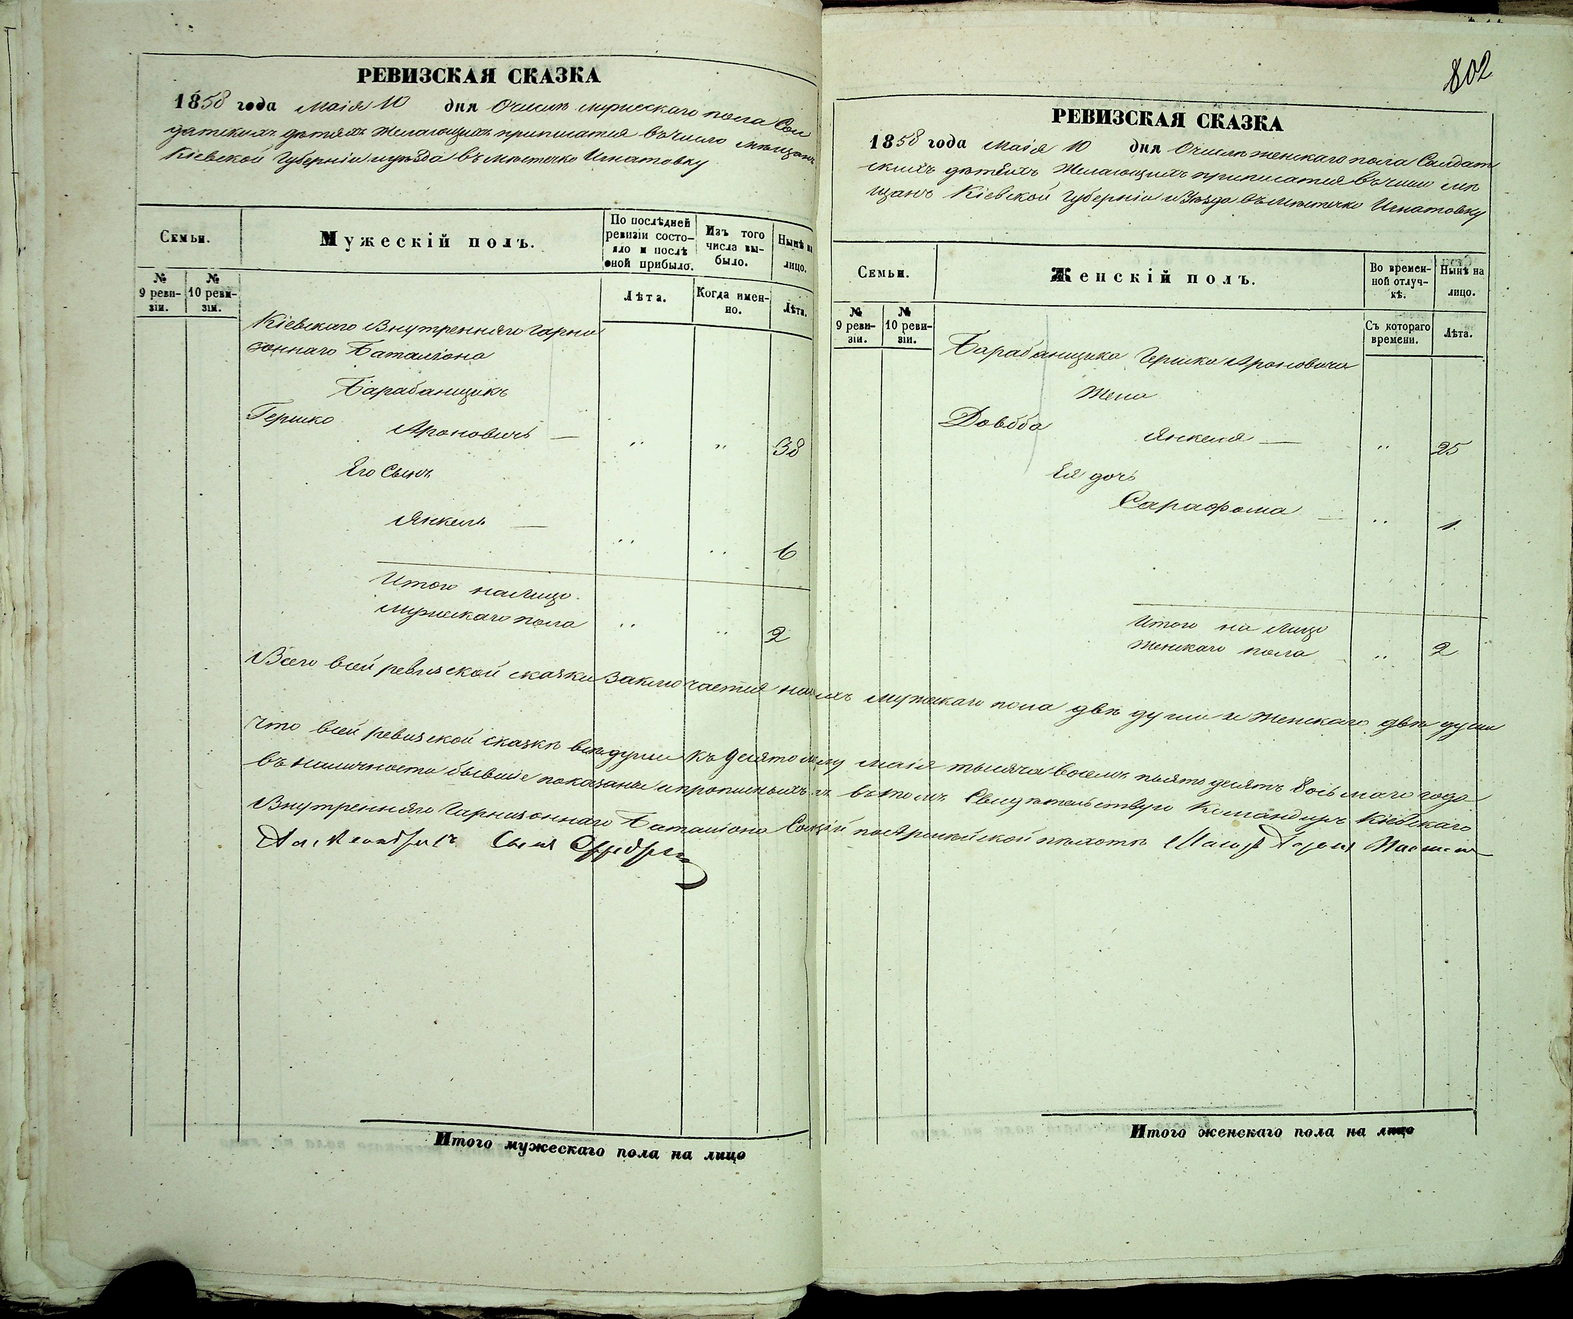 РЕВИЗСКАЯ СКАЗКА
1858 года Маія 10 дня О числѣ мужескаго пола Сол
датскихъ дѣтяхъ желающихъ приписатся въ число мѣщанъ
Кіевской Губерніи и уѣзда въ мѣстечко Игнатовку
Семьи.
Мужескій полъ.
По послѣдней ревизіи состояло и послѣ оной прибыло.
Изъ того числа выбыло.
Нынѣ на лицо.
№ 9 ревизіи.
№ 10 ревизіи.
Лѣта.
Когда именно.
Лѣта.
Кіевскаго Внутренняго Гарни
зоннаго Баталіона
Барабанщикъ
Гершко Ароновичъ — „ „ 38
Его Сынъ
Янкель — „ „ 6
Итого на Лицо
мужескаго пола „ „ 2
Итого мужескаго пола на лицо
802
РЕВИЗСКАЯ СКАЗКА
1858 года Маія 10 дня О числѣ женскаго пола Солдат
скихъ дѣтяхъ Желающихъ приписатся въ число мѣ
щанъ Кіевской Губерніи и Уѣзда въ мѣстечко Игнатовку
Семьи.
Женскій полъ.
Во временной отлучкѣ.
Нынѣ на лицо.
№ 9 ревизіи.
№ 10 ревизіи.
Съ котораго времени.
Лѣта.
Барабанщика Гершка Ароновича
Жена
Довбба Янкеля — „ 25
Ея дочь
Сарафома — „ 1
Итого на Лицо
Женскаго пола „ 2
Всего всей ревизской сказки заключается мужскаго пола двѣ души и женскаго двѣ души
Что всей ревизской сказкѣ всѣ души къ десятому маія тысяча восемь пятьдесятъ восьмаго года
въ наличности бывшіе показаны въ томъ Свидѣтельствую Командиръ Кіевскаго
Внутренняго Гарнизоннаго Баталіона по Армейской пѣхотѣ
Итого женскаго пола на лицо